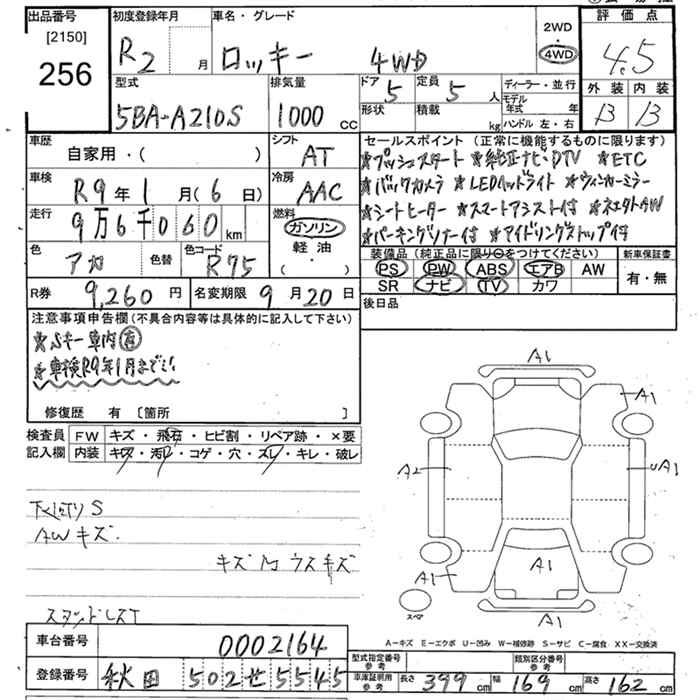 出品番号
[2150]
256
初度登録年月
R2 月
車名・グレード
ロッキー 4WD
2WD
・
4WD
評価点
4.5
外装 内装
B B
型式
5BA-A210S
排気量
1000 cc
ドア 5
形状
定員 5 人
積載 kg
ディーラー・並行
モデル年式 年
ハンドル 左・右
車歴
自家用・( )
シフト
AT
車検
R9年 1月(6日)
冷房
AAC
走行
9万6千060 km
燃料
ガソリン
軽油
( ・ )
色
アカ
色替
色コード
R75
R券 9,260円
名変期限 9月20日
セールスポイント (正常に機能するものに限ります)
★プッシュスタート ★純正ナビ・DTV ★ETC
★バックカメラ ★LEDヘッドライト ★ウィンカーミラー
★シートヒーター ★スマートアシスト付
★パーキングソナー付 ★アイドリングストップ付
装備品 (純正品に限り○をつけてください)
PS PW ABS エアB AW
SR ナビ TV カワ
新車保証書
有・無
後日品
注意事項申告欄(不具合内容等は具体的に記入して下さい)
★Sキー車内有
★車検R9年1月まで!!
修復歴 有 [箇所 ]
検査員記入欄
FW キズ・飛石・ヒビ割・リペア跡・×要
内装 キズ・汚れ・コゲ・穴・スレ・キレ・破レ
S
AWキズ.
キズ ウスキズ
A1
A1
A2
uA1
A1
A1
A1
スペア
A-キズ E-エクボ U-凹み W-補修跡 S-サビ C-腐食 XX-交換済
車台番号 0002164
登録番号 秋田 502 せ 5545
型式指定番号参考
類別区分番号参考
車庫証明用参考 長さ 399cm 幅 169cm 高さ 162cm